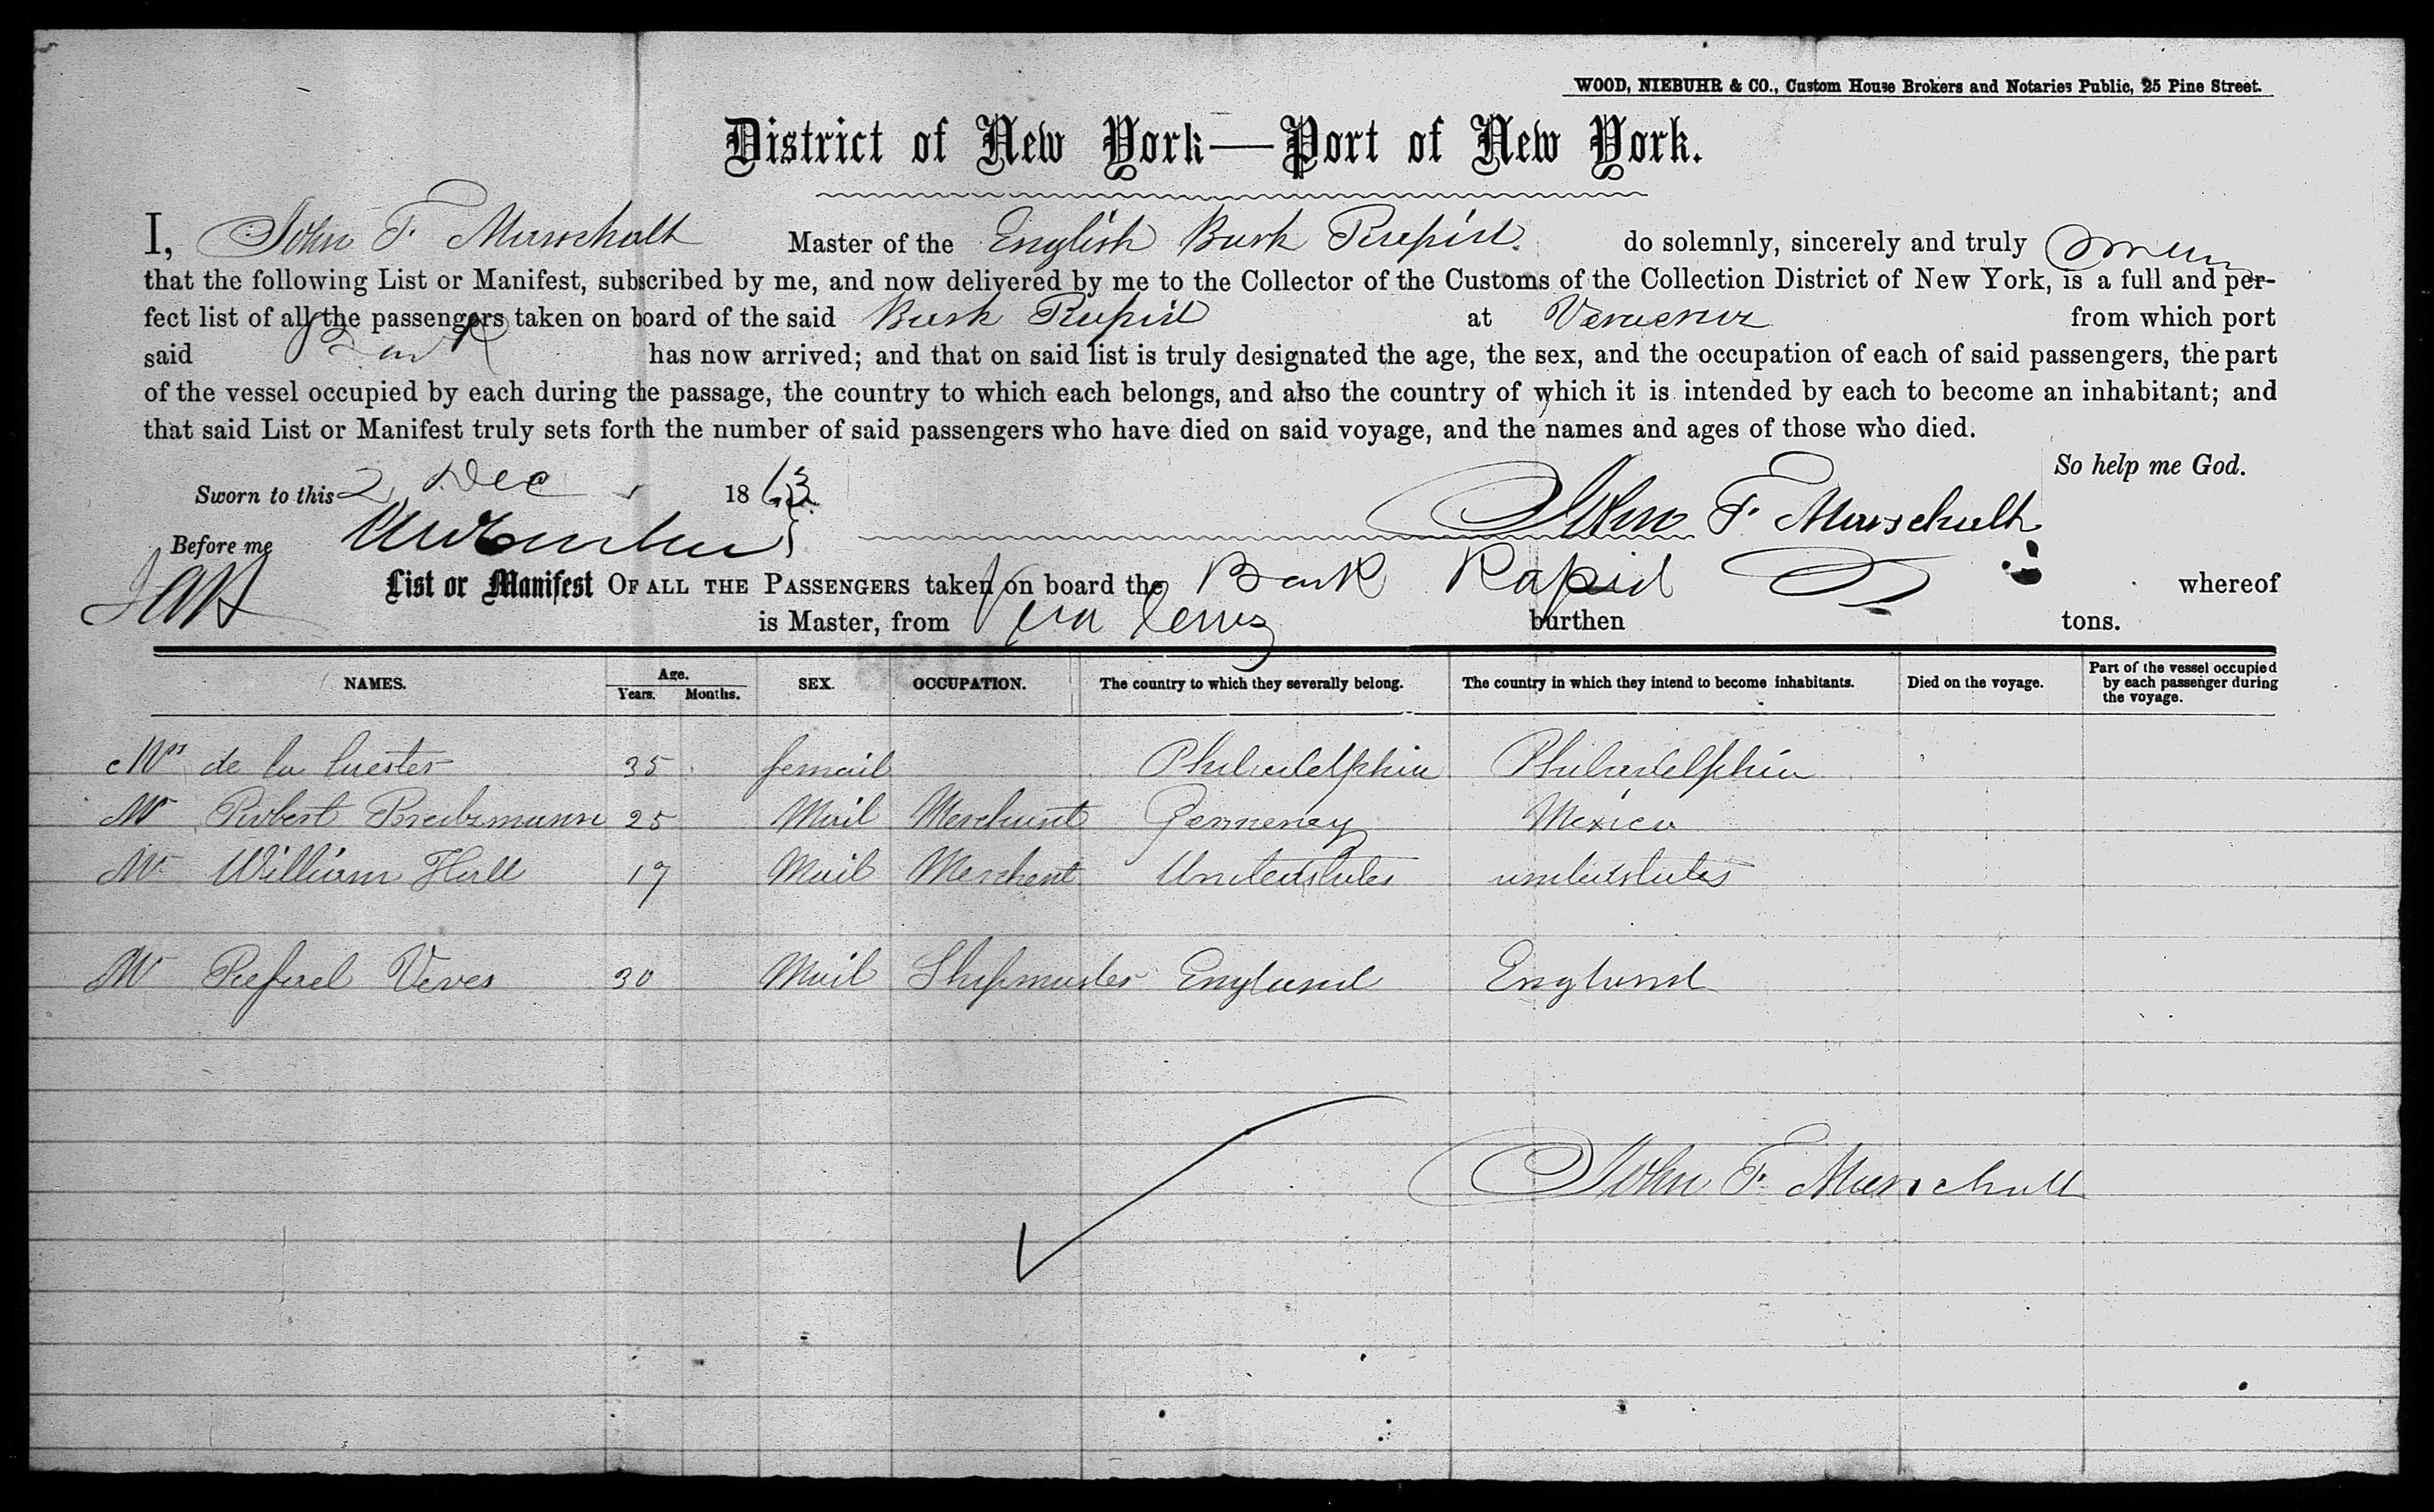 WOOD, NIEBUHR & CO., Custom House Brokers and Notaries Public, 25 Pine Street.
District of New York—Port of New York.
I, John F. Marschalk Master of the English Bark Rapid. do solemnly, sincerely and truly swear
that the following List or Manifest, subscribed by me, and now delivered by me to the Collector of the Customs of the Collection District of New York, is a full and per-
fect list of all the passengers taken on board of the said Bark Rapid at Veracruz from which port
said Bark has now arrived; and that on said list is truly designated the age, the sex, and the occupation of each of said passengers, the part
of the vessel occupied by each during the passage, the country to which each belongs, and also the country of which it is intended by each to become an inhabitant; and
that said List or Manifest truly sets forth the number of said passengers who have died on said voyage, and the names and ages of those who died.
So help me God.
Sworn to this 2 Dec 1863
John F. Marschalk
Before me
List or Manifest OF ALL THE PASSENGERS taken on board the Bark Rapid whereof
is Master, from Vera Cruz burthen tons.
NAMES. Age. Years. Months. SEX. OCCUPATION. The country to which they severally belong. The country in which they intend to become inhabitants. Died on the voyage. Part of the vessel occupied by each passenger during the voyage.
Mrs de la 35 femail Philadelphia Philadelphia
Mr Robert 25 Mail Merchant Germeney Mexico
Mr William Hall 19 Mail Merchent Unitedstates unitedstates
Mr Rafael Veves 30 Mail Shipmaster England England
John F. Marschalk